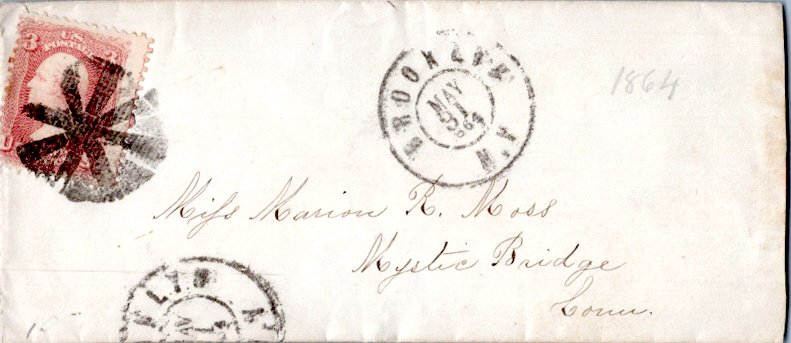 3 U.S. 3
POSTAGE
BROOKLYN N.Y.
MAY
31
1864
1864
Miss Marion R. Moss
Mystic Bridge
Conn.
KLYN N.Y.